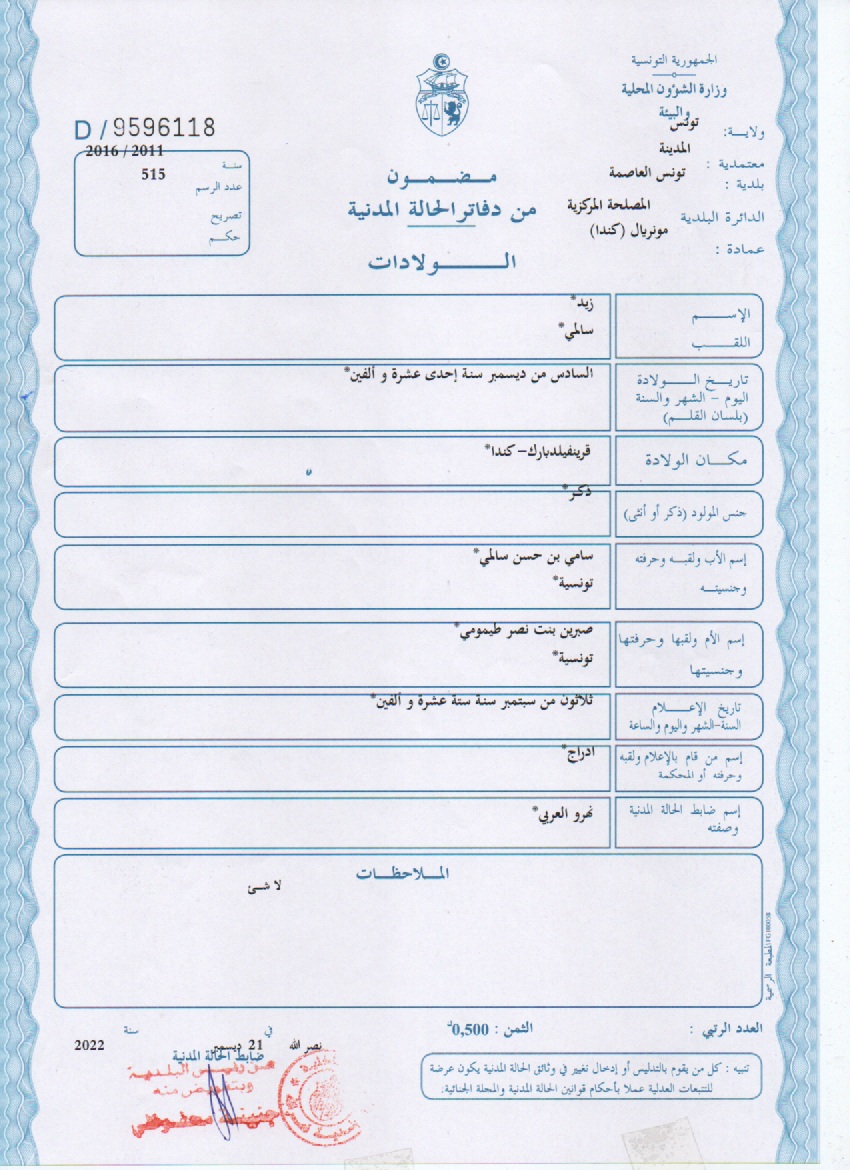 الجمهورية التونسية
وزارة الشؤون المحلية
والبيئة
ولايـــة: تونس
معتمدية : المدينة
بلدية : تونس العاصمة
الدائرة البلدية المصلحة المركزية
عمادة : مونريال (كندا)
D / 9596118
سنة 2016 / 2011
عدد الرسم 515
تصريح
حكـــم
مــضــمــون
من دفاتر الحالة المدنية
الـــــــولادات
الإســــــم زيد*
اللقــــــب سالمي*
تاريـــخ الــــــولادة السادس من ديسمبر سنة إحدى عشرة و ألفين*
اليوم – الشهر والسنة
(بلسان القلـــم)
مكــان الولادة قرينفيلدبارك – كندا*
جنس المولود (ذكر أو أنثى) ذكر*
إسم الأب ولقبـــه وحرفته سامي بن حسن سالمي*
وجنسيتــه تونسية*
إسم الأم ولقبها وحرفتها صبرين بنت نصر طيمومي*
وجنسيتها تونسية*
تاريخ الإعـــــلام ثلاثون من سبتمبر سنة ستة عشرة و ألفين*
السنة-الشهر واليوم والساعة
إسم من قام بالإعلام ولقبه ادراج*
وحرفته أو المحكمة
إسم ضابط الحالة المدنية نهرو العربي*
وصفته
المــلاحظــات
لا شئ
المطبعة الرسمية
العدد الرتبي : الثمن : 0,500د
نصر الله في 21 ديسمبر سنة 2022
ضابط الحالة المدنية
عن رئيس البلدية
وبتفويض منه
تنبيه : كل من يقوم بالتدليس أو إدخال تغيير في وثائق الحالة المدنية يكون عرضة
للتتبعات العدلية عملا بأحكام قوانين الحالة المدنية والمجلة الجنائية.